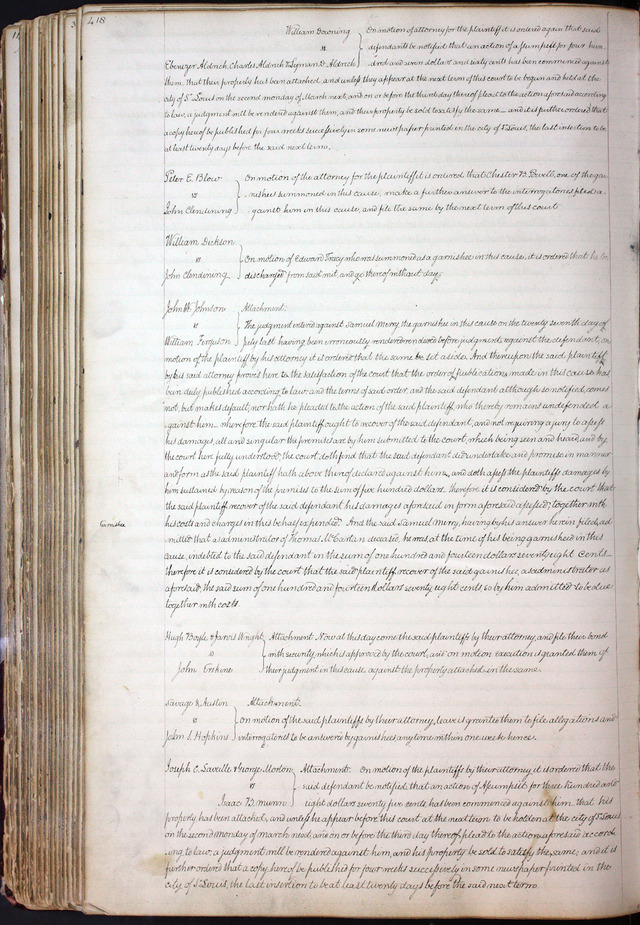 418
William Downing
vs
Ebenezer Aldrich, Charles Aldrich & Lyman D. Aldrich
On motion of attorney for the plaintiff it is ordered again that said
defendants be notified that an action of assumpsit for four hun-
dred and seven dollars and sixty cents has been commenced against
them, that their property has been attached, and unless they appear at the next term of this court to be begun and held at the
city of St Louis on the second monday of March next, and on or before the third day thereof plead to the action aforesaid according
to law, a judgment will be rendered against them, and their property be sold to satisfy the same – and it is further ordered that
a copy hereof be published for four weeks successively in some newspaper printed in the city of St Louis, the last insertion to be
at least twenty days before the said next term.
Peter E. Blow
vs
John Clendining
On motion of the attorney for the plaintiff it is ordered that Chester B. Lovell, one of the gar-
nishees summoned in this cause, make a further answer to the interrogatories filed a-
gainst him in this cause, and file the same by the next term of this court
William Dickson
vs
John Clendining
On motion of Edward Tracy who was summoned as a garnishee in this cause, it is ordered that he be
discharged from said writ, and go thereof without day.
John W. Johnson
vs
William Ferguson
Attachment.
The judgment entered against Samuel Merry, the garnishee in this cause on the twenty seventh day of
July last having been erroneously rendered before judgment against the defendant, on
motion of the plaintiff by his attorney it is ordered that the same be set aside. And thereupon the said plaintiff
by his said attorney proves here to the satisfaction of the court that the order of publication made in this cause has
been duly published according to law, and the terms of said order, and the said defendant although so notified, comes
not, but makes default, nor hath he pleaded to the action of the said plaintiff who thereby remains undefended a-
gainst him – wherefore the said plaintiff ought to recover of the said defendant, and not requiring a jury to assess
his damages, all and singular the premises are by him submitted to the court, which being seen and heard, and by
the court here fully understood, the court doth find that the said defendant did undertake and promise in manner
and form as the said plaintiff hath above thereof declared against him, and doth assess the plaintiffs damages by
him sustained by reason of the premises to the sum of five hundred dollars. Therefore it is considered by the court that
the said plaintiff recover of the said defendant his damages aforesaid in form aforesaid assessed, together with
his costs and charges in this behalf expended. And the said Samuel Merry, having by his answer herein filed, ad-
Garnishee
mitted that as administrator of Thomas McCartin deceased, he was at the time of his being garnisheed in this
cause, indebted to the said defendant in the sum of one hundred and fourteen dollars seventy eight cents –
therefore it is considered by the court that the said plaintiff recover of the said garnishee, as administrator as
aforesaid, the said sum of one hundred and fourteen dollars seventy eight cents, so by him admitted to be due
together with costs.
Hugh Boyle & Jarvis Wright
vs
John Erskine
Attachment. Now at this day come the said plaintiffs by their attorney, and file their bond
with security, which is approved by the court, and on motion execution is granted them of
their judgment in this cause against the property attached in the same.
Savage & Austin
vs
John S. Hopkins
Attachment.
On motion of the said plaintiffs by their attorney, leave is granted them to file allegations and
interrogatories to be answered by garnishees any time within one week hence.
Joseph C. Laveille & George Morton
vs
Isaac B. Munn
Attachment. On motion of the plaintiffs by their attorney, it is ordered that the
said defendant be notified, that an action of Assumpsit for three hundred and
eight dollars seventy five cents has been commenced against him that his
property has been attached, and unless he appear before this court at the next term to be holden at the city of St Louis
on the second monday of march next, and on or before the third day thereof, plead to the action aforesaid accord-
ing to law, a judgment will be rendered against him, and his property be sold to satisfy the same; and it is
further ordered that a copy hereof be published for four weeks successively in some newspaper printed in the
city of St Louis, the last insertion to be at least twenty days before the said next term.